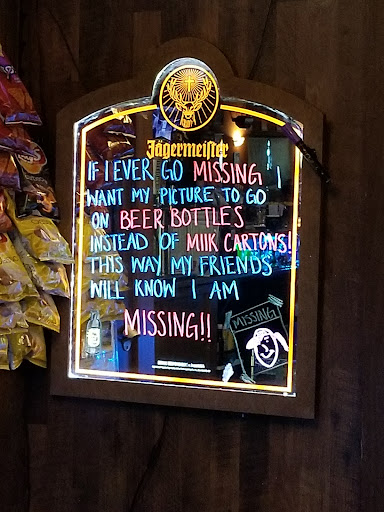 Jägermeister
IF I EVER GO MISSING I
WANT MY PICTURE TO GO
ON BEER BOTTLES
INSTEAD OF MIIK CARTONS!
THIS WAY MY FRIENDS
WILL KNOW I AM
MISSING!!
MISSING